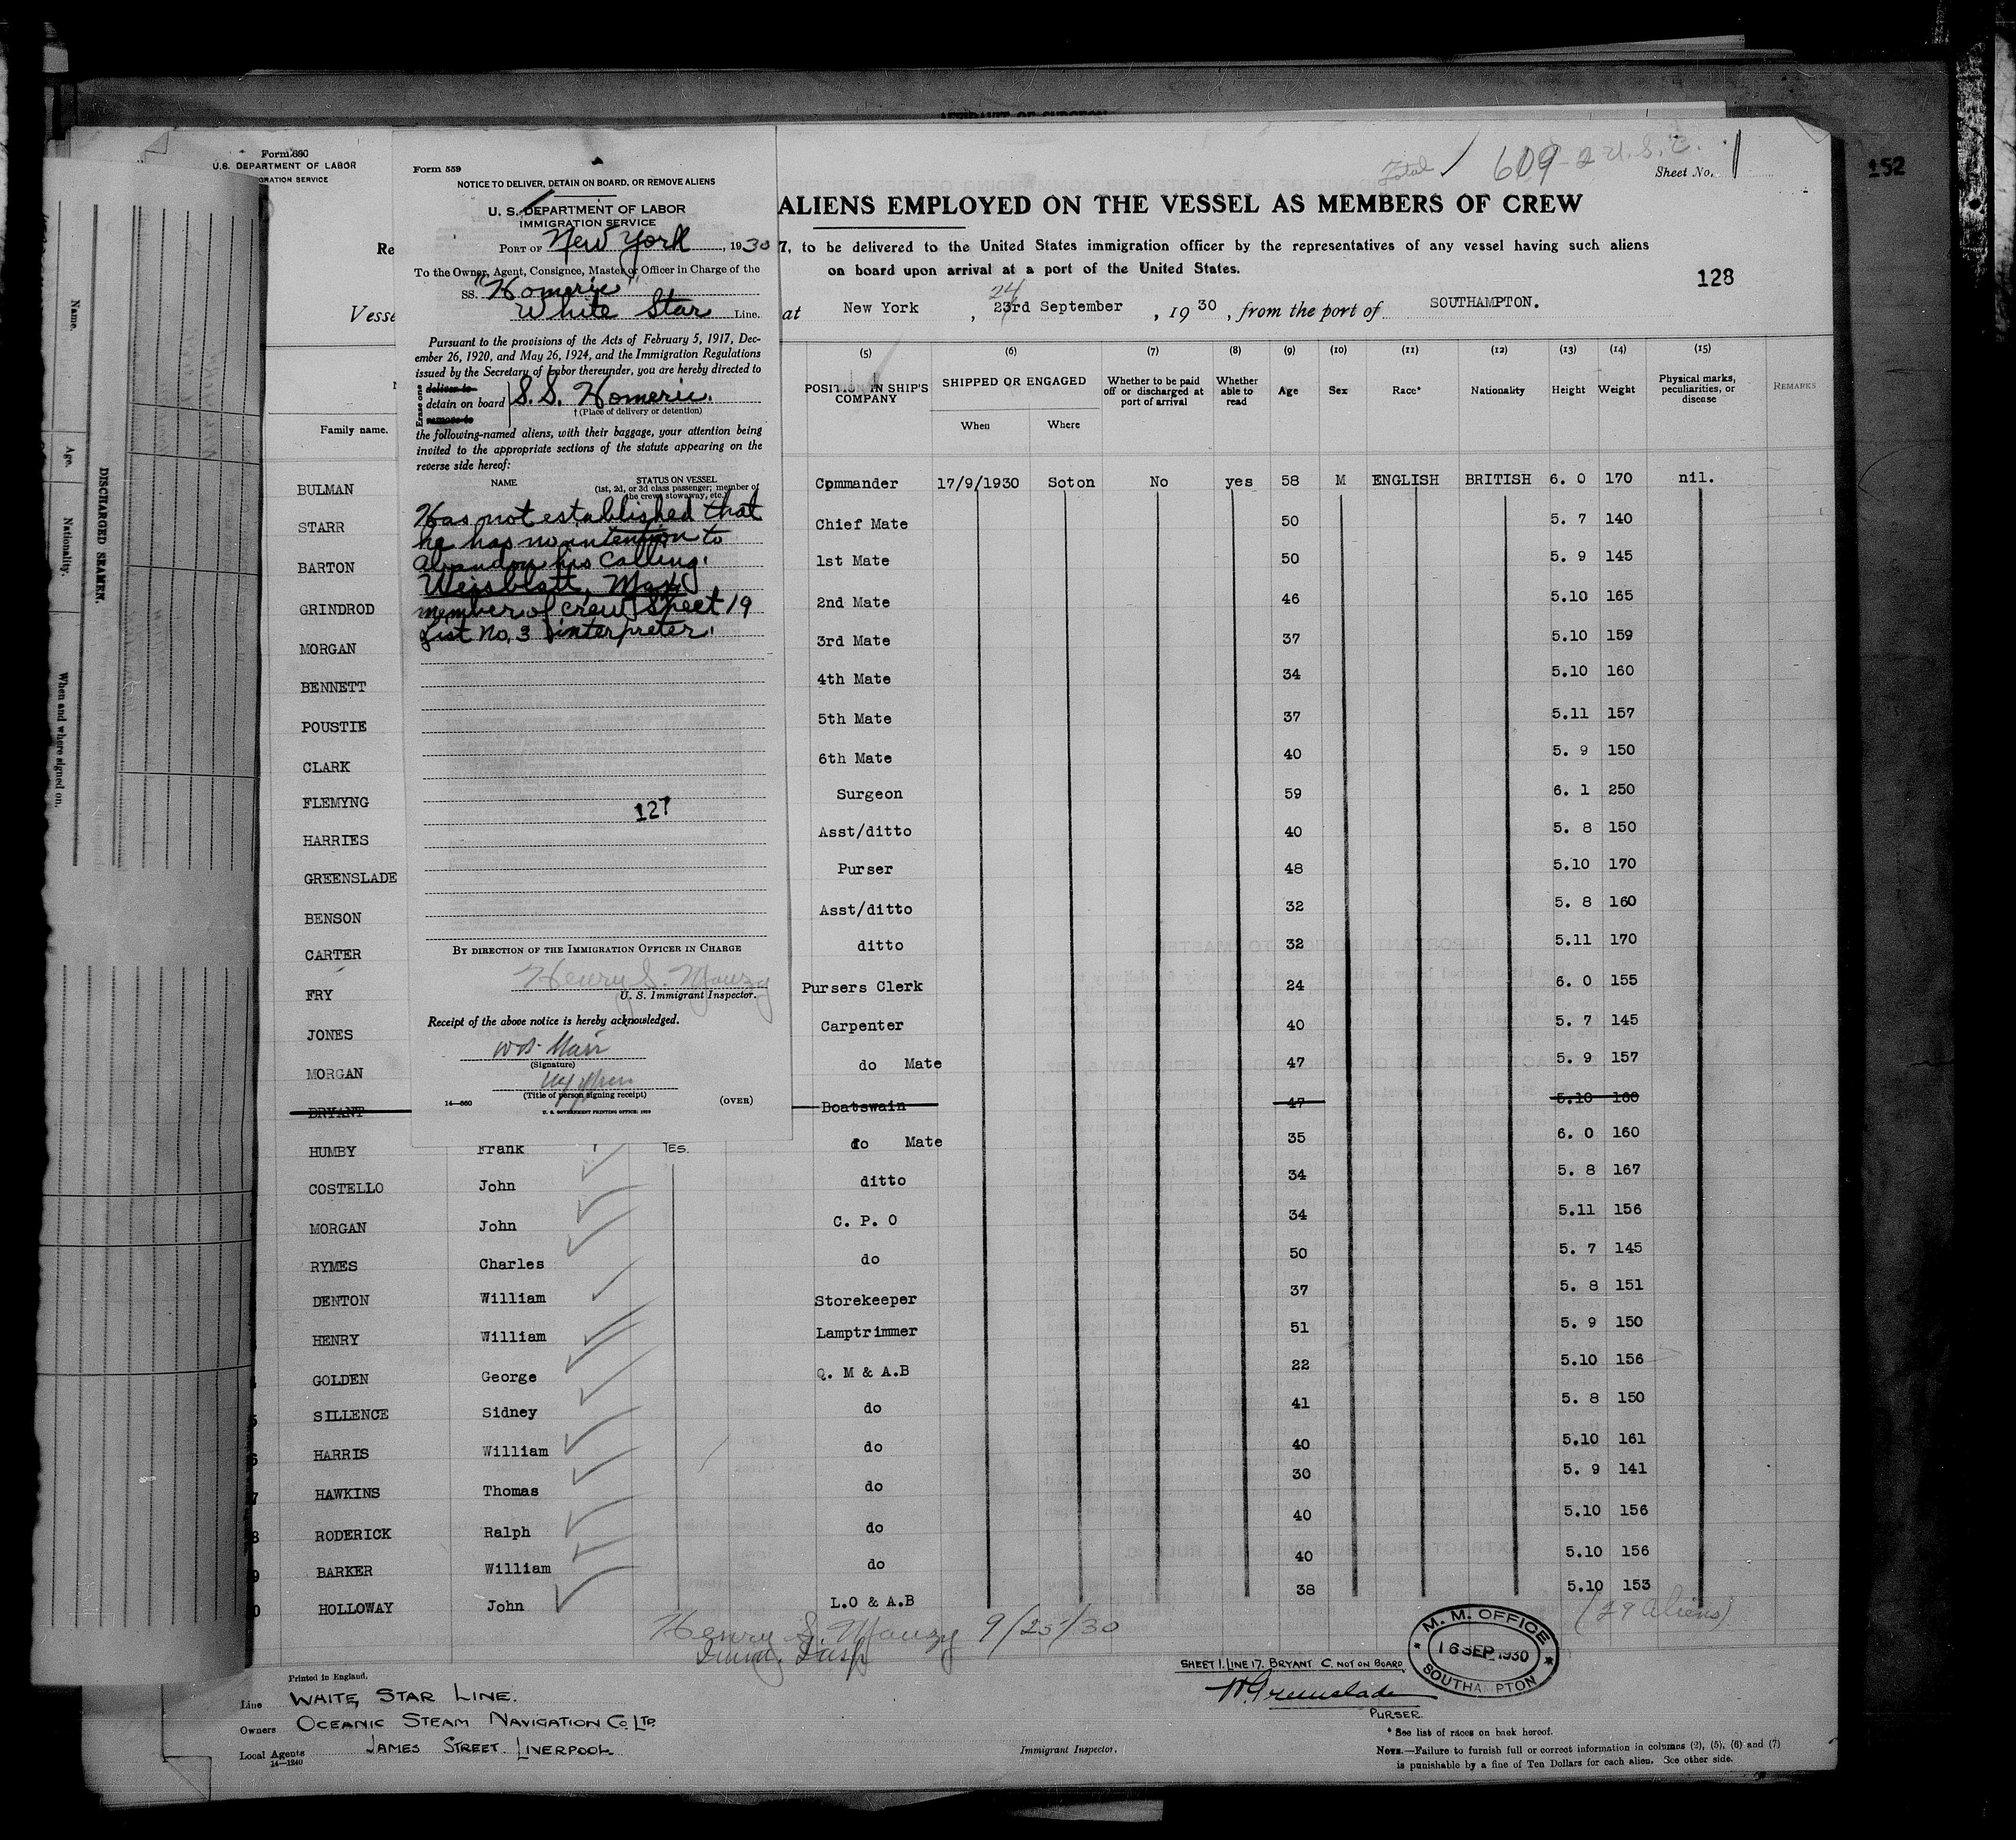 152
Form 680
U.S. DEPARTMENT OF LABOR
IGRATION SERVICE
Re
Vesse
Family name.
Name.
Age.
Nationality.
When and where signed on.
DISCHARGED SEAMEN.
Form 559
NOTICE TO DELIVER, DETAIN ON BOARD, OR REMOVE ALIENS
U. S. DEPARTMENT OF LABOR
IMMIGRATION SERVICE
PORT OF New York, 1930
To the Owner, Agent, Consignee, Master or Officer in Charge of the
SS. "Homeric"
White Star Line.
Pursuant to the provisions of the Acts of February 5, 1917, Dec-
ember 26, 1920, and May 26, 1924, and the Immigration Regulations
issued by the Secretary of Labor thereunder, you are hereby directed to
Erase one
deliver to
detain on board S.S. Homeric.
remove to
† (Place of delivery or detention)
the following-named aliens, with their baggage, your attention being
invited to the appropriate sections of the statute appearing on the
reverse side hereof:
NAME STATUS ON VESSEL
(1st, 2d, or 3d class passenger; member of
the crew, stowaway, etc.)
Has not established that
he has no intention to
abandon his calling.
Weisblatt, Max
member of crew Sheet 19
List No. 3 interpreter.
127
BY DIRECTION OF THE IMMIGRATION OFFICER IN CHARGE
Henry S. Mouzy
U. S. Immigrant Inspector.
Receipt of the above notice is hereby acknowledged.
(Signature)
(Title of person signing receipt)
14—660 (OVER)
U. S. GOVERNMENT PRINTING OFFICE: 1929
Total 609 - 2 U.S.C.
Sheet No. 1
ALIENS EMPLOYED ON THE VESSEL AS MEMBERS OF CREW
7, to be delivered to the United States immigration officer by the representatives of any vessel having such aliens
on board upon arrival at a port of the United States.
128
24
at New York, 23rd September, 1930, from the port of SOUTHAMPTON.
(5) (6) (7) (8) (9) (10) (11) (12) (13) (14) (15)
POSITION IN SHIP'S COMPANY SHIPPED OR ENGAGED When Where Whether to be paid off or discharged at port of arrival Whether able to read Age Sex Race* Nationality Height Weight Physical marks, peculiarities, or disease REMARKS
BULMAN Commander 17/9/1930 Soton No yes 58 M ENGLISH BRITISH 6. 0 170 nil.
STARR Chief Mate 50 5. 7 140
BARTON 1st Mate 50 5. 9 145
GRINDROD 2nd Mate 46 5.10 165
MORGAN 3rd Mate 37 5.10 159
BENNETT 4th Mate 34 5.10 160
POUSTIE 5th Mate 37 5.11 157
CLARK 6th Mate 40 5. 9 150
FLEMYNG Surgeon 59 6. 1 250
HARRIES Asst/ditto 40 5. 8 150
GREENSLADE Purser 48 5.10 170
BENSON Asst/ditto 32 5. 8 160
CARTER ditto 32 5.11 170
FRY Pursers Clerk 24 6. 0 155
JONES Carpenter 40 5. 7 145
MORGAN do Mate 47 5. 9 157
BRYANT Boatswain 47 5.10 160
HUMBY Frank Yes. do Mate 35 6. 0 160
COSTELLO John ditto 34 5. 8 167
MORGAN John C. P. O 34 5.11 156
RYMES Charles do 50 5. 7 145
DENTON William Storekeeper 37 5. 8 151
HENRY William Lamptrimmer 51 5. 9 150
GOLDEN George Q. M & A.B 22 5.10 156
SILLENCE Sidney do 41 5. 8 150
HARRIS William do 40 5.10 161
HAWKINS Thomas do 30 5. 9 141
RODERICK Ralph do 40 5.10 156
BARKER William do 40 5.10 156
HOLLOWAY John L.O & A.B 38 5.10 153
(29 aliens)
Henry S. Mouzy 9/25/30
Immig. Insp
M. M. OFFICE
16 SEP 1930
SOUTHAMPTON
SHEET 1. LINE 17. BRYANT C. NOT ON BOARD.
W. Greenslade
PURSER.
Printed in England.
Line WHITE STAR LINE.
Owners OCEANIC STEAM NAVIGATION CO. LTD.
Local Agents JAMES STREET. LIVERPOOL.
14—1240
Immigrant Inspector.
* See list of races on back hereof.
NOTE.—Failure to furnish full or correct information in columns (2), (5), (6) and (7)
is punishable by a fine of Ten Dollars for each alien. See other side.